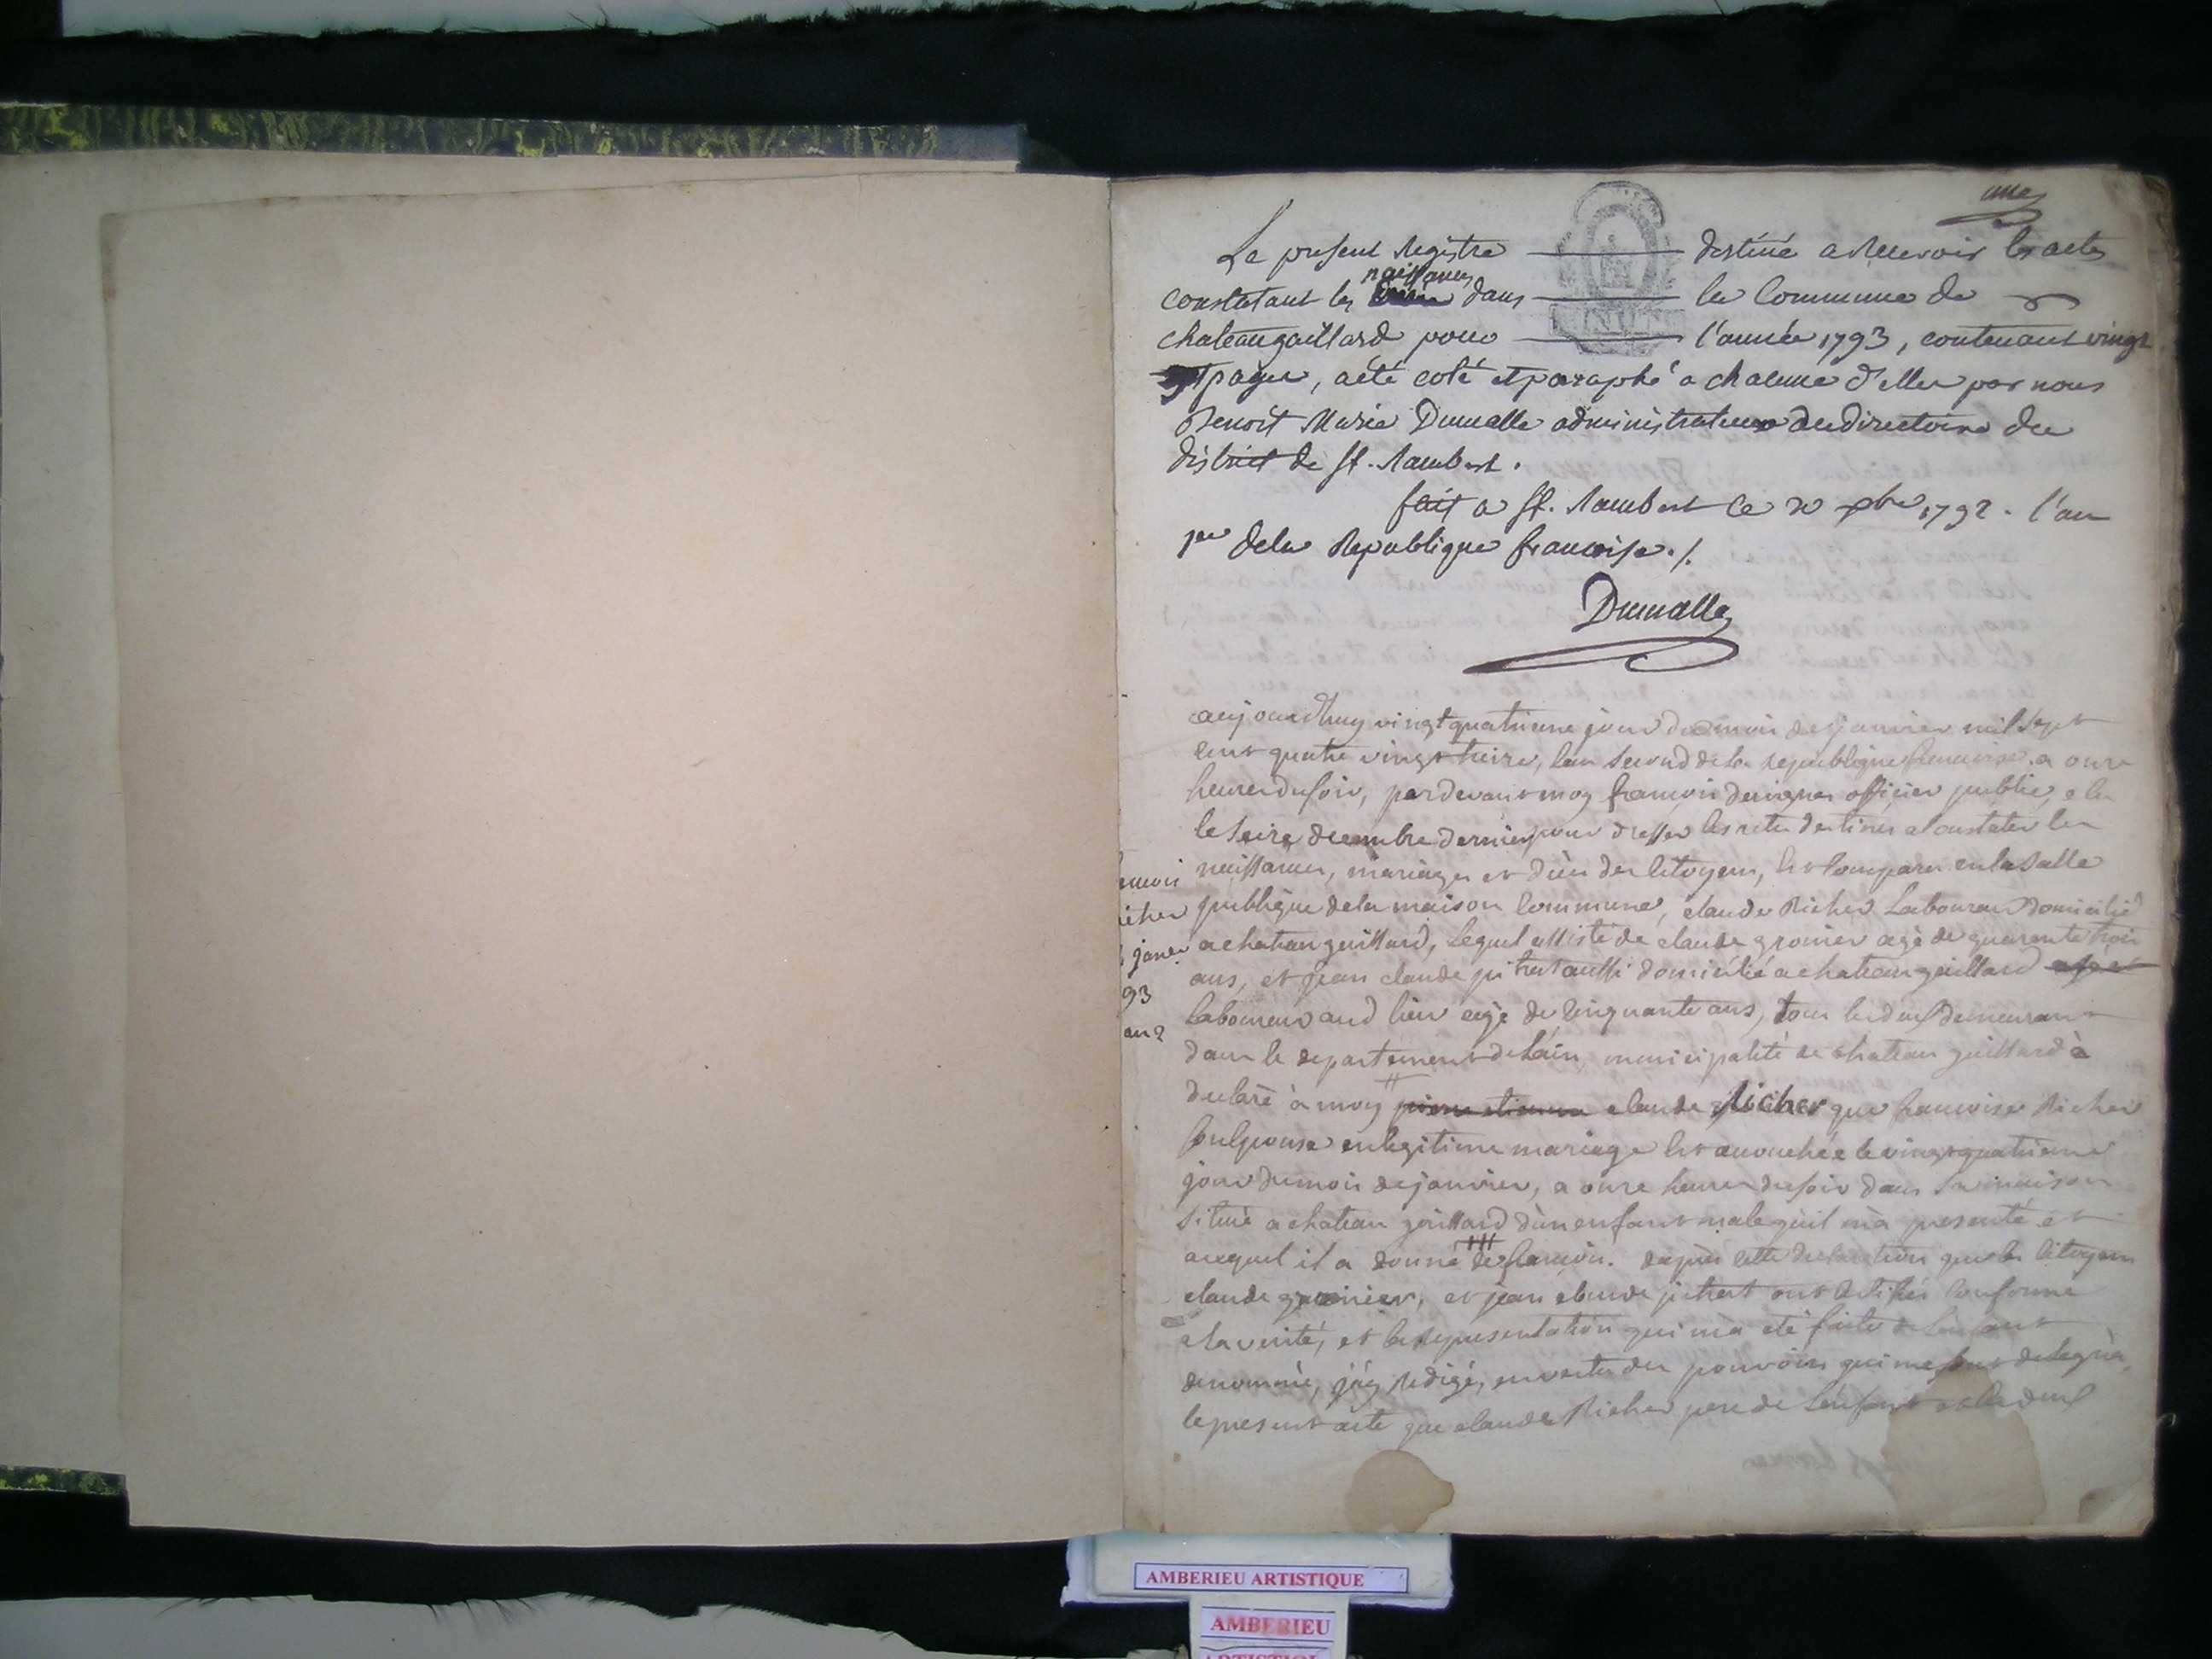 une
Le present Registre destiné a Recevoir les actes
constatant les naissances dans la Commune de
chateaugaillard pour l'année 1793, contenant vingt
pages, a été coté et paraphé a chacune d'elles par nous
Benoit Marie Dumalle administrateur du directoire du
district de St. Rambert.
fait a St. Rambert ce 20 xbre 1792. l'an
1er de la Republique francoise ./.
Dumalle
aujourdhuy vingt quatrieme jour du mois de janvier mil sept
cent quatre vingt treize, lan second de la republique francoise a onze
heures du soir, pardevant moy francois officier public, elu
le seize decembre dernier pour dresser les actes destines a constater les
naissances, mariages et deces des citoyens, est comparu en la salle
publique de la maison commune, claude Richer Laboureur domicilié
a chateau gaillard, lequel assisté de claude gronier agé de quarente trois
ans, et jean claude pitrat aussi domicilié a chateaugaillard
laboureur aud lieu agé de cinquante ans, tous les deux demeurant
dans le departement de lain, municipalité de chateau gaillard à
declaré à moy claude Richer que francoise Richer
son epouse en legitime mariage est accouchée le vingt quatrieme
jour du mois de janvier, a onze heures du soir dans sa maison
situé a chateau gaillard d'un enfant male qu'il m'a presenté et
auquel il a donné de francois. dapres cette declaration que les citoyens
claude gronier, et jean claude pitrat ont certifiés conforme
a la verité, et la representation qui m'a eté faite de l'enfant
denommé, j'ay redigé, en vertu des pouvoirs qui me sont delegués,
le present acte que claude Richer pere de l'enfant et les deux
icher
janer
93
an 2
AMBERIEU ARTISTIQUE
AMBERIEU
ARTISTIQUE